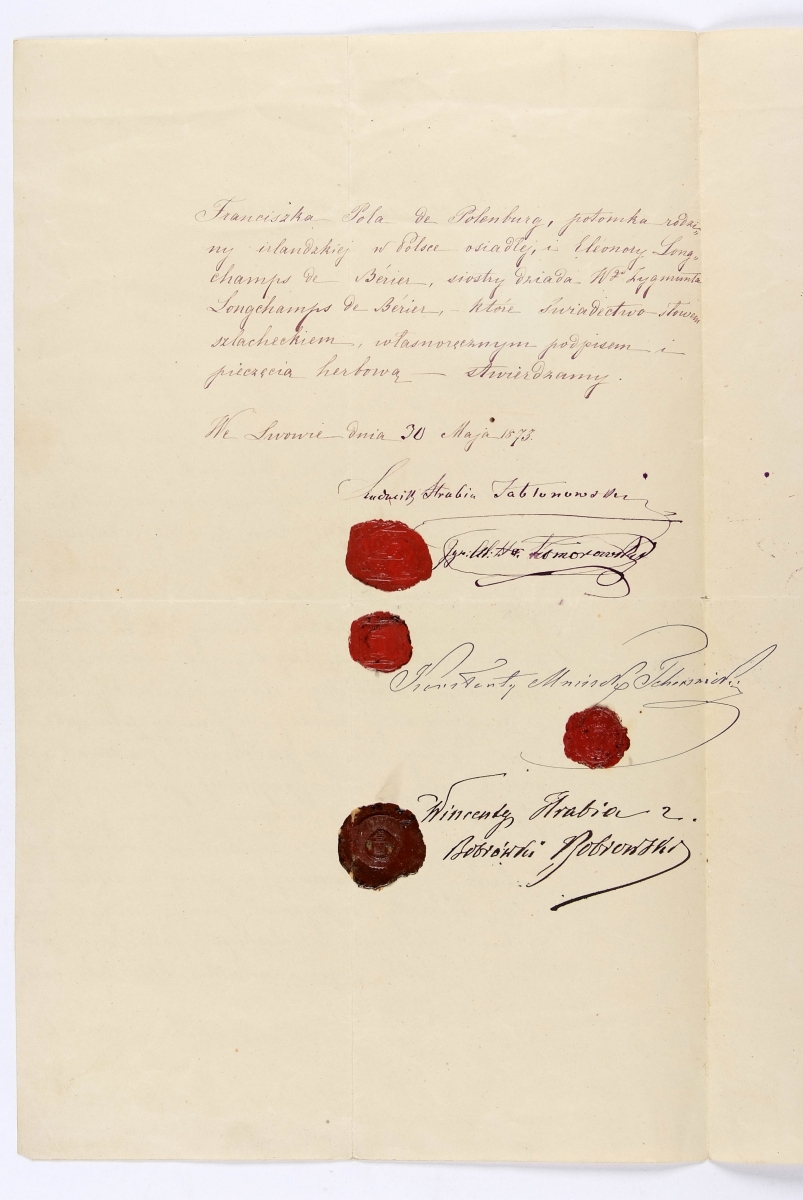 Franciszka Pola de Polenburg, potomka rodzi-
ny irlandzkiej w Polsce osiadłej, i Eleonory Long-
champs de Bérier, siostry dziada Wgo Zygmunta
Longchamps de Bérier, – które świadectwo słowem
szlacheckiem, własnoręcznym podpisem i
pieczęcią herbową – stwierdzamy.
We Lwowie dnia 30 Maja 1873.
Ludwik Hrabia Jabłonowski
Hr. Komorowski
Konstanty
Wincenty Hrabia z
Bobrówki Bobrowski